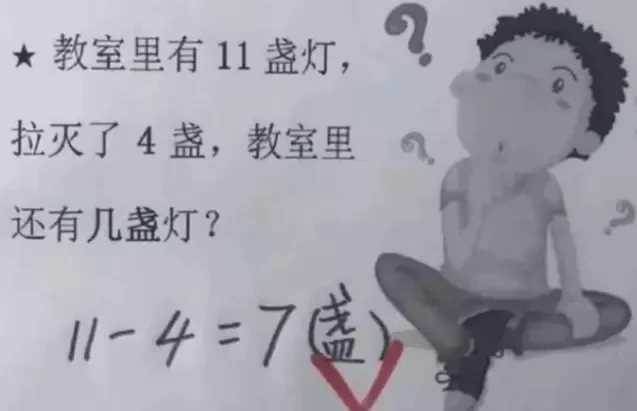 ★ 教室里有 11 盏灯，
拉灭了 4 盏，教室里
还有几盏灯？
11-4=7(盏)